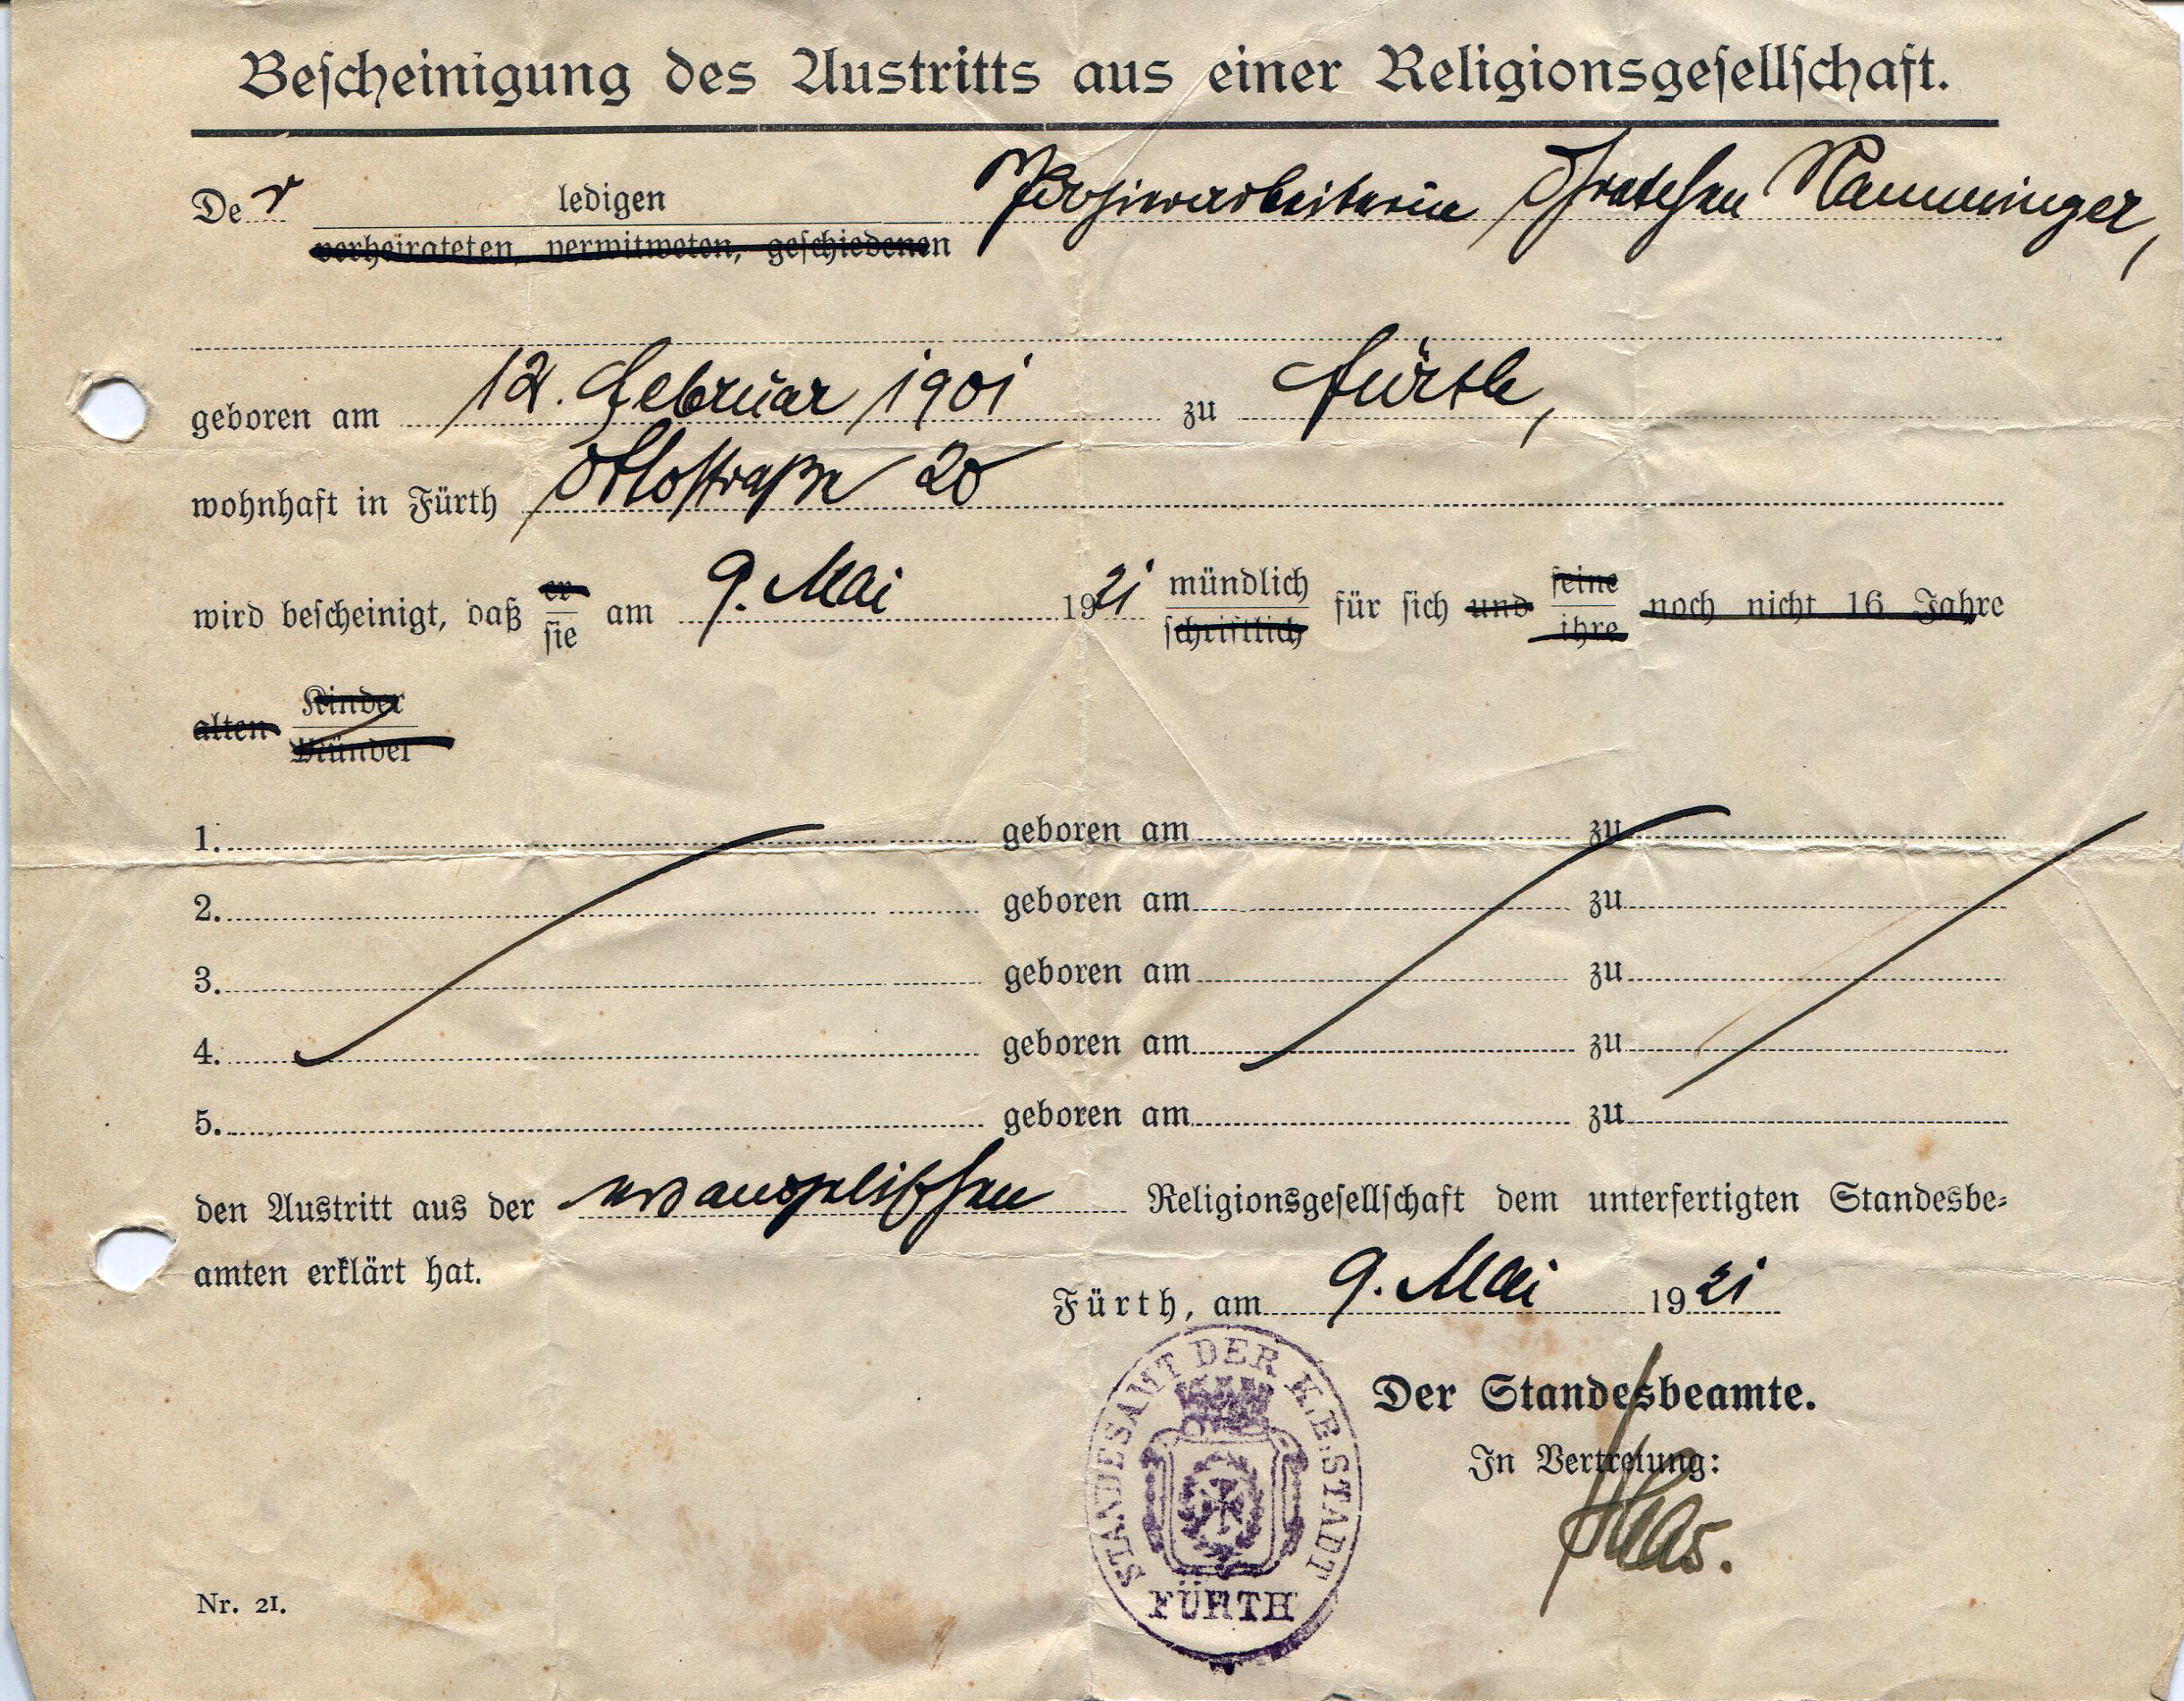 Bescheinigung des Austritts aus einer Religionsgesellschaft.
Der ledigen
verheirateten, verwitweten, geschiedenen
Gretchen Namminger,
geboren am 12. Februar 1901 zu Fürth,
wohnhaft in Fürth Ottostraße 20
wird bescheinigt, daß er sie am 9. Mai 1921 mündlich schriftlich für sich und seine ihre noch nicht 16 Jahre
alten Kinder Mündel
1. geboren am zu
2. geboren am zu
3. geboren am zu
4. geboren am zu
5. geboren am zu
den Austritt aus der evangelischen Religionsgesellschaft dem unterfertigten Standesbe-
amten erklärt hat.
Fürth, am 9. Mai 1921
Der Standesbeamte.
In Vertretung:
STANDESAMT DER K.B. STADT
FÜRTH
Nr. 21.